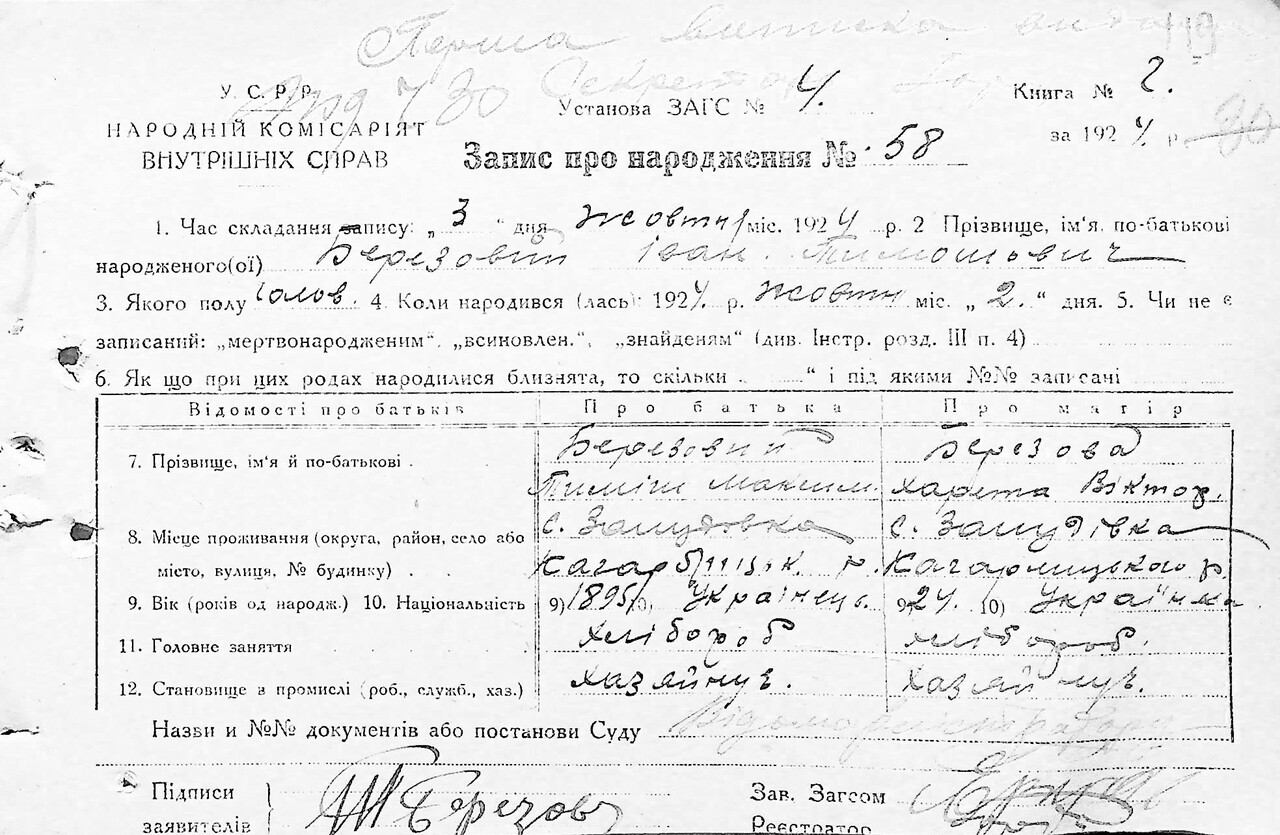 Перша виписка видана
119
У. С. Р. Р.
Установа ЗАГС № 4.
Книга № 2.
НАРОДНІЙ КОМІСАРІЯТ
за 1924 р.
ВНУТРІШНІХ СПРАВ
Запис про народження № 58
1. Час складання запису: „3“ дня жовтня міс. 1924 р. 2 Прізвище, ім'я, по-батькові
народженого(ої) Березовий Іван Тимошович
3. Якого полу чолов. 4. Коли народився (лась): 1924. р. жовтн міс. „2.“ дня. 5. Чи не є
записаний: „мертвонародженим“, „всиновлен.“, „знайденям“ (див. Інстр. розд. III п. 4)
6. Як що при цих родах народилися близнята, то скільки “ і під якими №№ записані
Відомості про батьків Про батька Про матір
Березовий Березова
7. Прізвище, ім'я й по-батькові .
Тиміш Максим. Харета Віктор.
с. Зашудовка с. Зашудівка
8. Місце проживання (округа, район, село або
місто, вулиця, № будинку) . . Кагарлицьк. р. Кагарлицького р.
9. Вік (років од народж.) 10. Національність 9) 1895 10) Українець. 9) 24. 10) Українка
11. Головне заняття хлібороб хлібороб.
12. Становище в промислі (роб., служб., хаз.) хазяйнує. хазяйнує.
Назви и №№ документів або постанови Суду
Підписи
Зав. Загсом
Т Березов
заявителів
Реєстратор